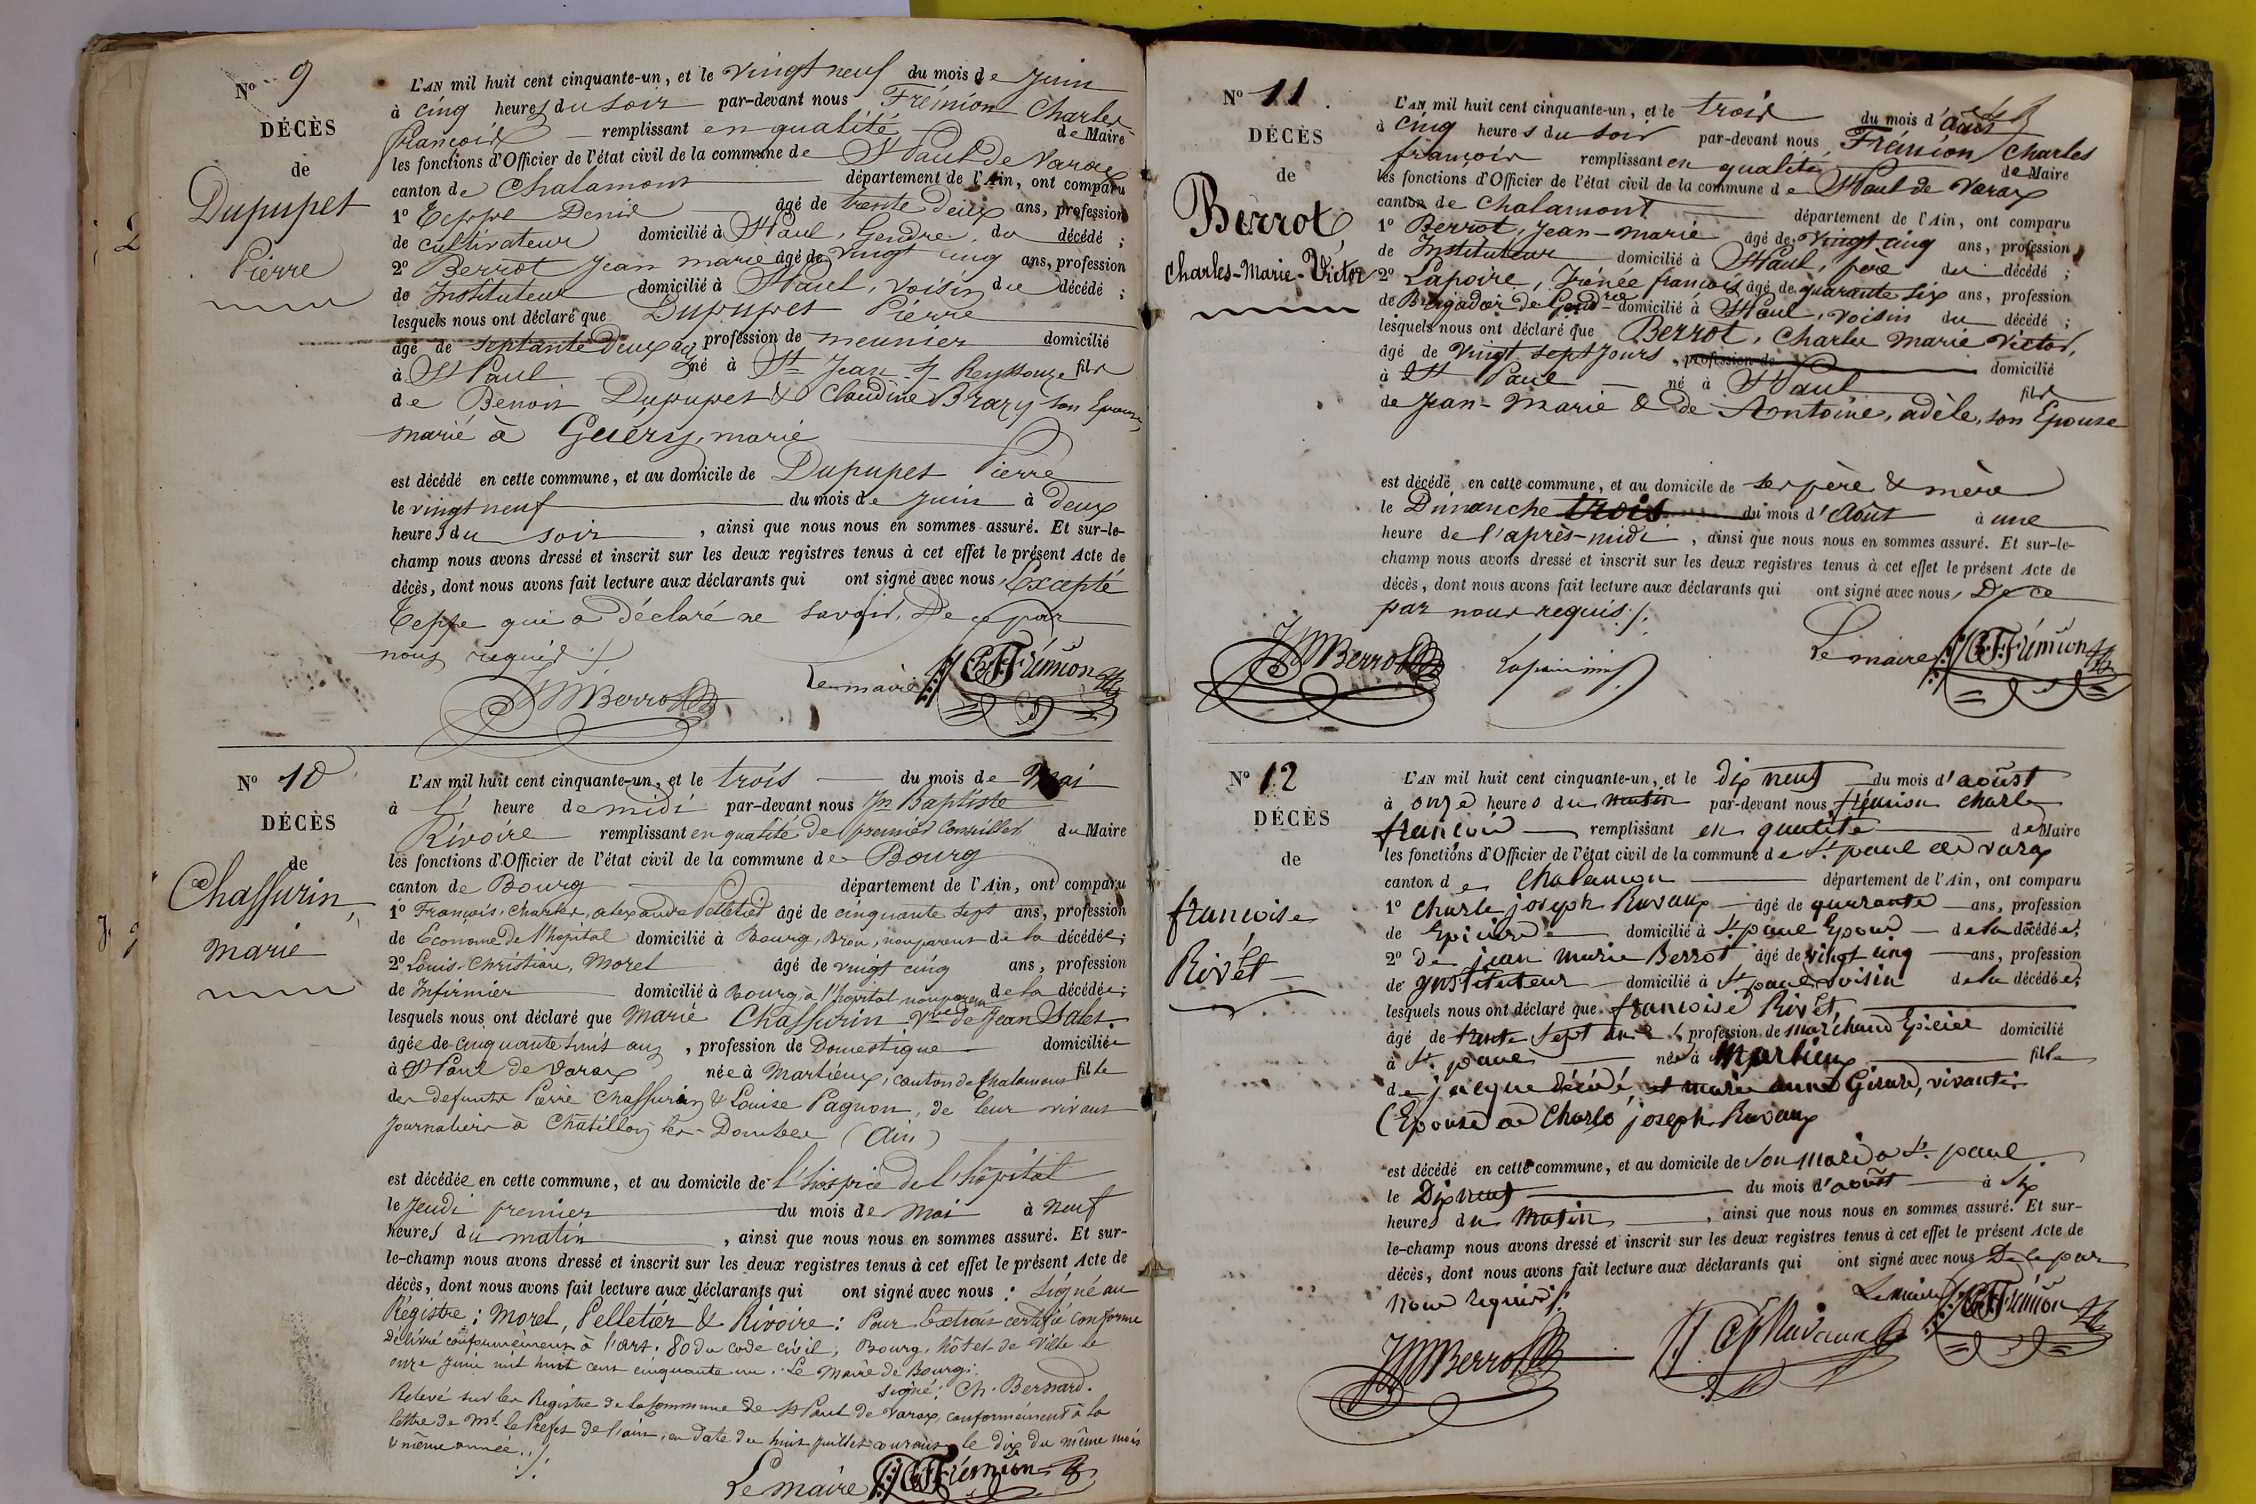 N° 9
DÉCÈS
de
Dupupet
Pierre
L'AN mil huit cent cinquante-un, et le vingt neuf du mois de Juin
à cinq heures du soir par-devant nous Frémion Charles
françois remplissant en qualité de Maire
les fonctions d'Officier de l'état civil de la commune de St Paul de Varax
canton de Chalamont département de l'Ain, ont comparu
1° Teppe Denis âgé de trente deux ans, profession
de cultivateur domicilié à St Paul, Gendre, du décédé ;
2° Berrot Jean marie âgé de vingt cinq ans, profession
de Instituteur domicilié à St Paul, voisin du décédé ;
lesquels nous ont déclaré que Dupupet Pierre
âgé de septante deux ans profession de meunier domicilié
à St Paul né à St Jean s/ Reyssouze fils
de Benoit Dupupet & Claudine Brazy son Epouse
marié à Guéry, marie
est décédé en cette commune, et au domicile de Dupupet Pierre
le vingt neuf du mois de Juin à Deux
heures du soir , ainsi que nous nous en sommes assuré. Et sur-le-
champ nous avons dressé et inscrit sur les deux registres tenus à cet effet le présent Acte de
décès, dont nous avons fait lecture aux déclarants qui ont signé avec nous, Excepté
Teppe qui a déclaré ne savoir, De ce par
nous requis ./.
JM Berrot
Le maire ChF Frémion
N° 10
DÉCÈS
de
Chassurin,
marie
L'AN mil huit cent cinquante-un, et le trois du mois de Mai
à l' heure de midi par-devant nous Jn Baptiste
Rivoire remplissant en qualité de premier Conseiller du Maire
les fonctions d'Officier de l'état civil de la commune de Bourg
canton de Bourg département de l'Ain, ont comparu
1° François, Charles, alexandre Pelletier âgé de cinquante sept ans, profession
de Économe de l'hôpital domicilié à Bourg, Brou, non parent de la décédée;
2° Louis-Christian, Morel âgé de vingt cinq ans, profession
de Infirmier domicilié à Bourg, à l'hôpital non parent de la décédée;
lesquels nous ont déclaré que Marie Chassurin Vve de Jean Sales.
âgée de cinquante huit ans , profession de Domestique domiciliée
à St Paul de Varax née à Marlieux, canton de Chalamont fille
des defunts Pierre Chassurin & Louise Pagnon, de leur vivant
Journaliers à Châtillon les-Dombes (Ain)
est décédée en cette commune, et au domicile de l'hospice de l'hôpital
le Jeudi premier du mois de mai à neuf
heures du matin , ainsi que nous nous en sommes assuré. Et sur-
le-champ nous avons dressé et inscrit sur les deux registres tenus à cet effet le présent Acte de
décès, dont nous avons fait lecture aux déclarants qui ont signé avec nous : Signé au
Régistre : Morel, Pelletier & Rivoire : Pour Extrait certifié conforme
délivré conformément à l'art. 80 du code civil, Bourg, hôtel de Ville le
onze Juin mil huit cent cinquante un. Le Maire de Bourg :
signé : Ch. Bernard.
Relevé sur les Registre de la Commune de St Paul de Varax, conformément à la
lettre de Mr. le Préfet de l'ain, en date du huit Juillet courant le dix du même mois
& même année ./.
Le maire ChF Frémion
N° 11
DÉCÈS
de
Berrot
Charles-Marie-Victor
L'AN mil huit cent cinquante-un, et le trois du mois d'Août
à cinq heures du soir par-devant nous, Frémion Charles
françois remplissant en qualité de Maire
les fonctions d'Officier de l'état civil de la commune de St Paul de Varax
canton de Chalamont département de l'Ain, ont comparu
1° Berrot, Jean-marie âgé de vingt cinq ans, profession
de Instituteur domicilié à St Paul, père du décédé ;
2° Lapoire, Irénée françois âgé de quarante six ans, profession
de Brigadier de Gendrie domicilié à St Paul, voisin du décédé ;
lesquels nous ont déclaré que Berrot, Charles marie Victor,
âgé de vingt sept jours , profession de domicilié
à St Paul né à St Paul fils
de Jean-Marie & de Antoine, adèle, son Epouse
est décédé en cette commune, et au domicile de ses père & mère
le Dimanche trois du mois d'Août à une
heure de l'après-midi , ainsi que nous nous en sommes assuré. Et sur-le-
champ nous avons dressé et inscrit sur les deux registres tenus à cet effet le présent Acte de
décès, dont nous avons fait lecture aux déclarants qui ont signé avec nous, De ce
par nous requis ./.
JM Berrot
Le maire ChF Frémion
N° 12
DÉCÈS
de
francoise
Rivet
L'AN mil huit cent cinquante-un, et le dix neuf du mois d'août
à onze heures du matin par-devant nous frémion charle
françois remplissant en qualité de Maire
les fonctions d'Officier de l'état civil de la commune de St paul de varax
canton de Chalamon département de l'Ain, ont comparu
1° Charle joseph Ravaux âgé de quarante ans, profession
de Epicier domicilié à St paul Epoux de la décédée;
2° de jean marie Berrot âgé de vingt cinq ans, profession
de ynstituteur domicilié à St paul voisin de la décédée;
lesquels nous ont déclaré que francoise Rivet
âgé de trente sept ans profession de marchand Epicier domicilié
à St. paul née à Marlieux fille
de jacque décédé, et marie anne Girard, vivante
(Epouse de Charle joseph Ravaux
est décédé en cette commune, et au domicile de Son Marid a St. paul
le Dix neuf du mois d'août à Six
heures du Matin , ainsi que nous nous en sommes assuré. Et sur-
le-champ nous avons dressé et inscrit sur les deux registres tenus à cet effet le présent Acte de
décès, dont nous avons fait lecture aux déclarants qui ont signé avec nous De ce par
nous requis ./.
Le maire ChF Frémion
JM Berrot
Ravaux